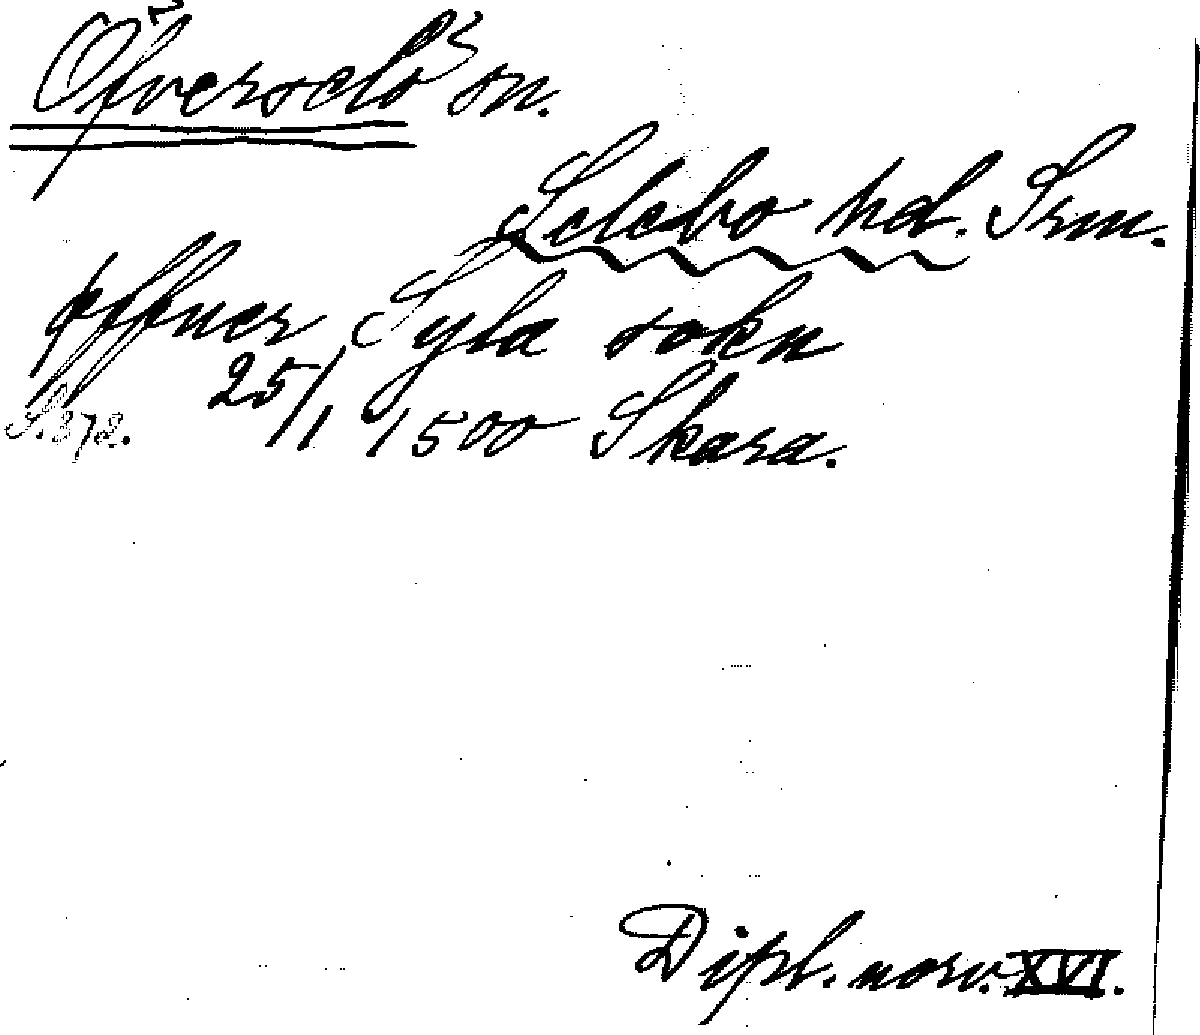 Öfverselö sn.
Selebo hd. Srm.
øffner Syla sokn
S. 372. 25/1 1500 Skara.
Dipl. norv. XVI.